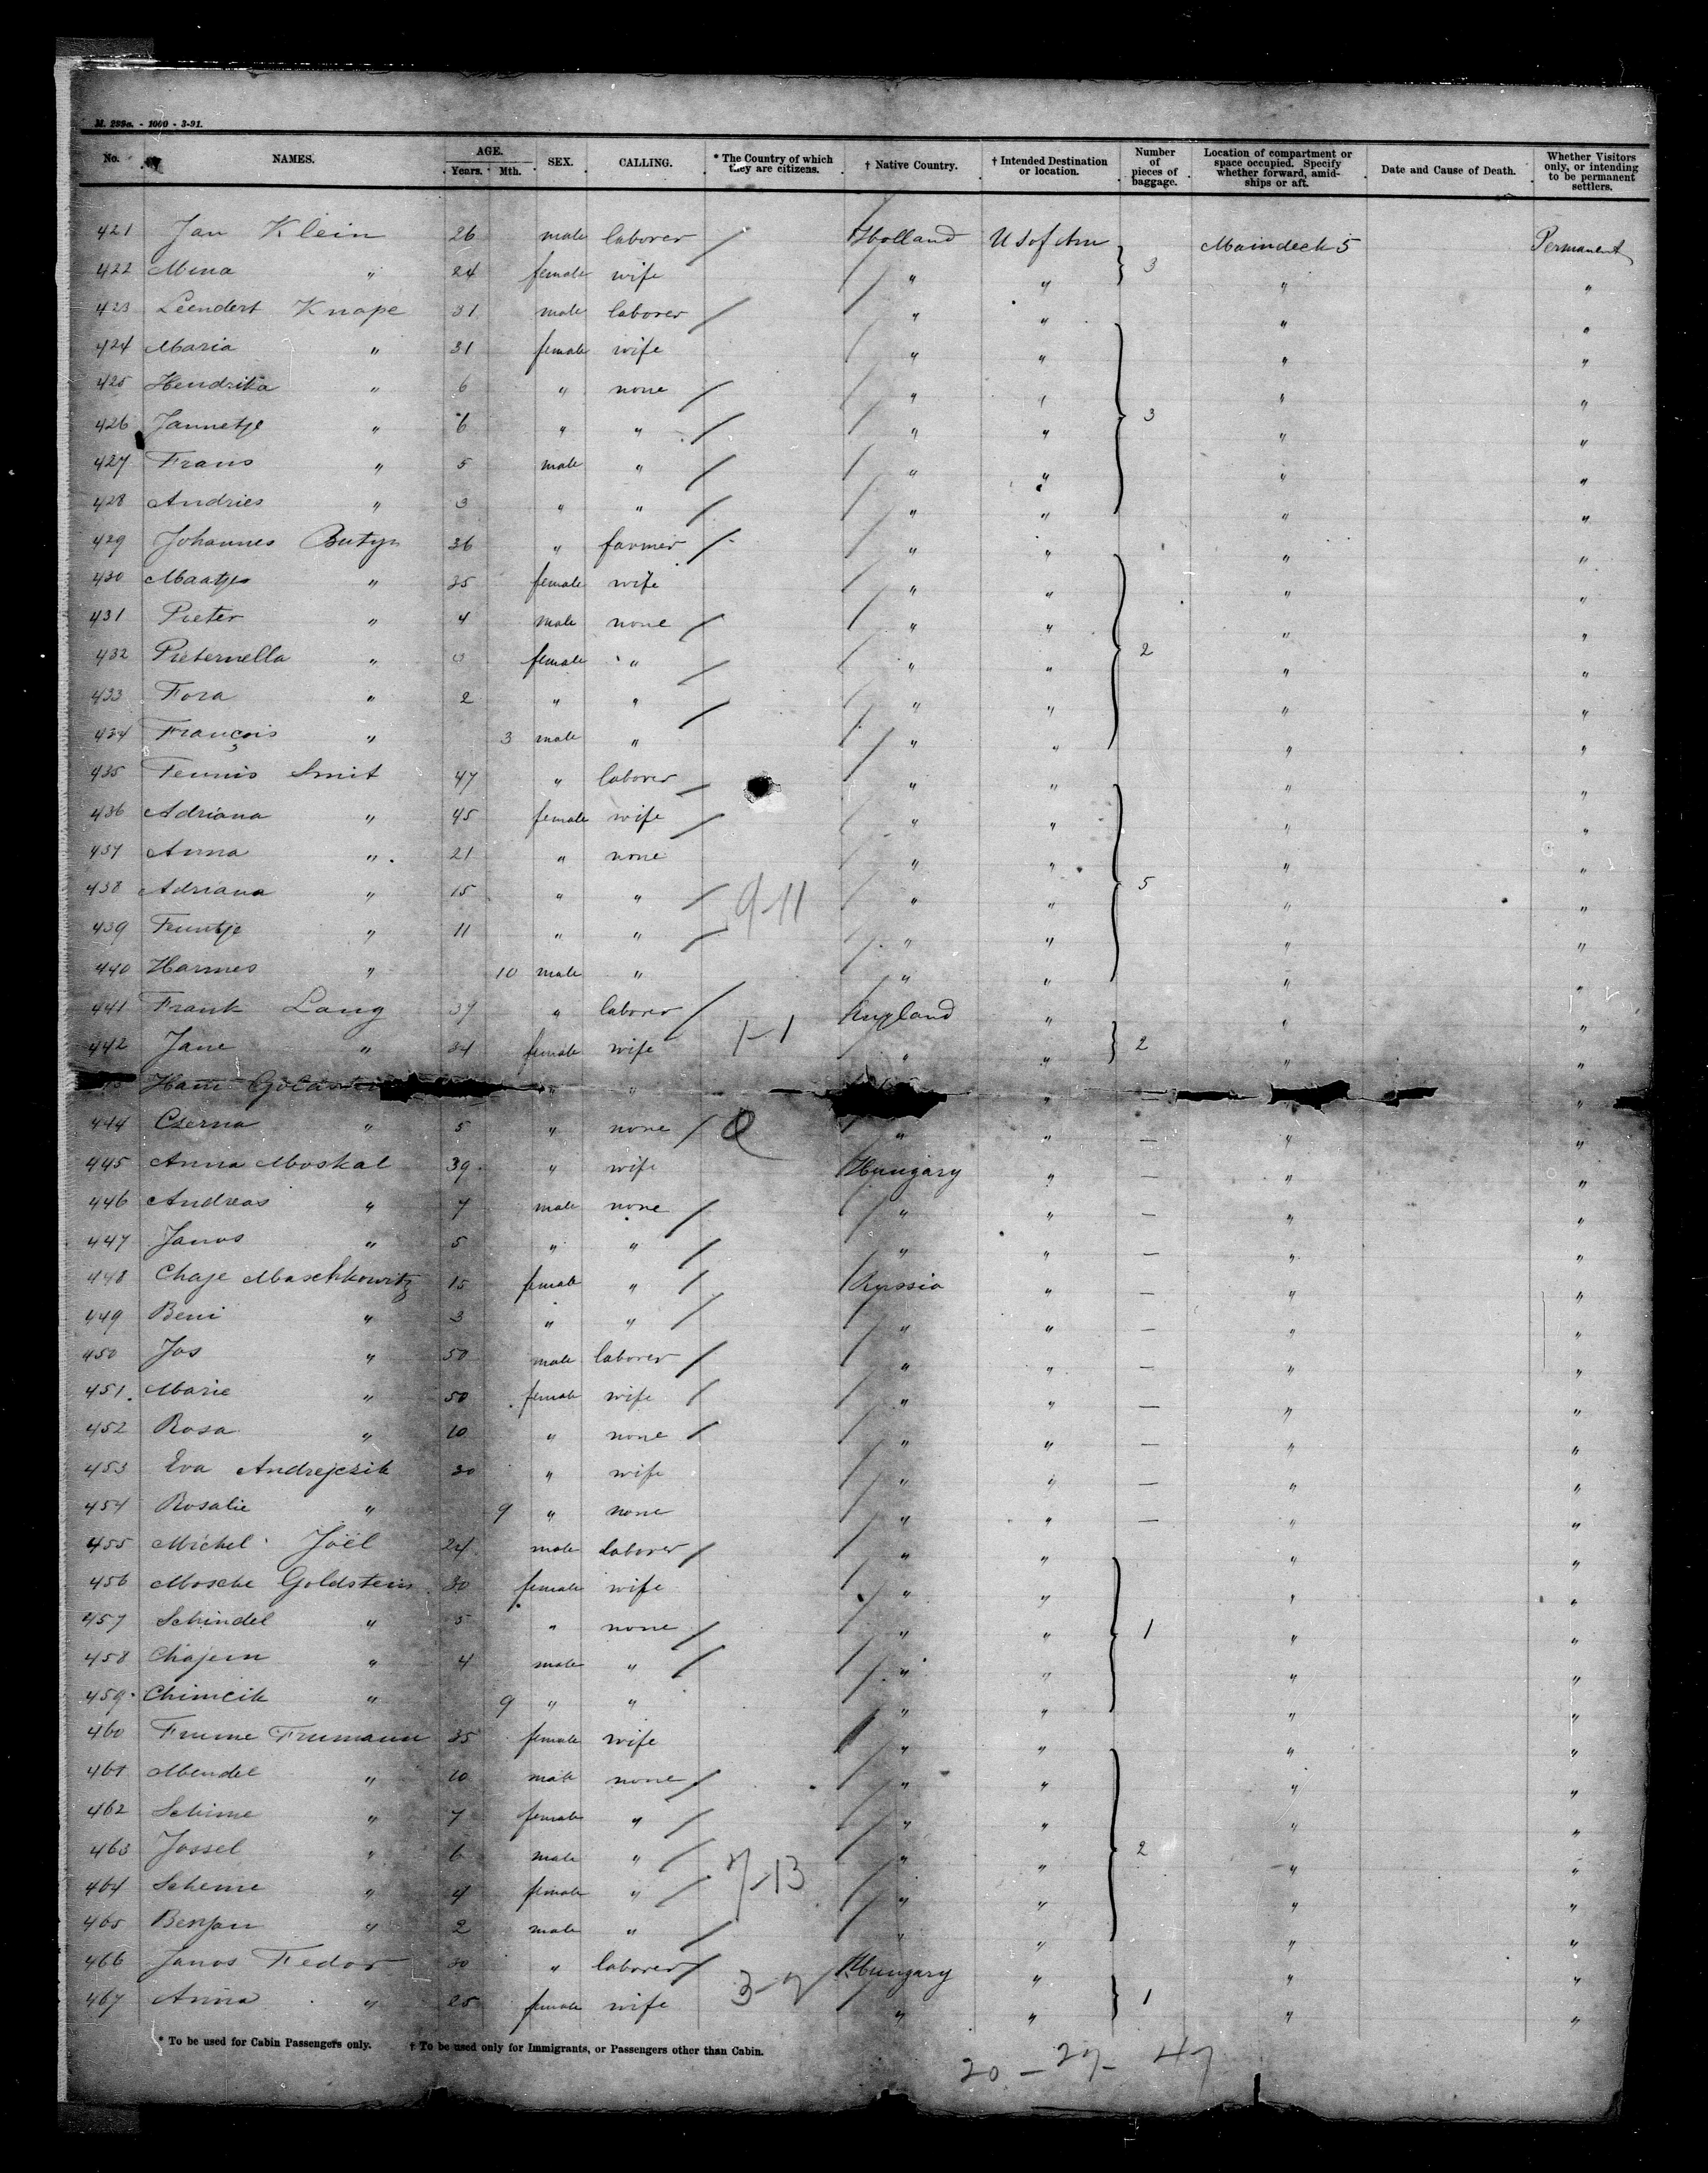 M. 239a. - 1000 - 3-91.
No. NAMES. AGE. Years. Mth. SEX. CALLING. * The Country of which they are citizens. † Native Country. † Intended Destination or location. Number of pieces of baggage. Location of compartment or space occupied. Specify whether forward, amidships or aft. Date and Cause of Death. Whether Visitors only, or intending to be permanent settlers.
421 Jan Klein 26 male laborer / Holland U S of Am Maindeck 5 Permanent
422 Mina " 24 female wife " " } 3 " "
423 Leendert Knape 31 male laborer / " " " "
424 Maria " 31 female wife " " " "
425 Hendrika " 6 " none / " " " "
426 Jannetje " 6 " " / " " } 3 " "
427 Frans " 5 male " / " " " "
428 Andries " 3 " " / " " " "
429 Johannes Butyn 36 " farmer / " " " "
430 Maatje " 35 female wife " " " "
431 Pieter " 4 male none / " " " "
432 Pieternella " female " / " " } 2 " "
433 Fora " 2 " " / " " " "
434 François " 3 male " " " " "
435 Teunis Smit 47 " laborer / " " " "
436 Adriana " 45 female wife / " " " "
437 Anna " 21 " none " " " "
438 Adriana " 15 " " / 9-11 " " } 5 " "
439 Teuntje " 11 " " / " " " "
440 Harmes " 10 male " " " " "
441 Frank Lang 39 " laborer / England " " "
442 Jane " 34 female wife 1-1 " " } 2 " "
Hani " " " — "
444 Czerna " 5 " none / " " — " "
445 Anna Moskal 39 " wife Hungary " — " "
446 Andreas " 7 male none / " " — " "
447 Janos " 5 " " / " " — " "
448 Chaje Maschkowitz 15 female " / Russia " — " "
449 Beni " 3 " " / " " — " "
450 Jos " 50 male laborer / " " — " "
451 Marie " 50 female wife / " " — " "
452 Rosa " 10 " none / " " — " "
453 Eva Andrejczik 30 " wife " " — " "
454 Rosalie " 9 " none " " — " "
455 Michel Joël 24 male laborer / " " " "
456 Mosche Goldstein 30 female wife " " " "
457 Schindel " 5 " none / " " } 1 " "
458 Chajem " 4 male " / " " " "
459 Chimcik " 9 " " " " " "
460 Frume Frumann 35 female wife " " " "
461 Mendel " 10 male none / " " " "
462 Schime " 7 female " / " " " "
463 Jossel " 6 male " / " " } 2 " "
464 Scheme " 4 female " / 7-13 " " " "
465 Benjan " 2 male " / " " " "
466 Janos Fedor 30 " laborer / Hungary " " "
467 Anna " 25 female wife 3-2 " " } 1 " "
* To be used for Cabin Passengers only. † To be used only for Immigrants, or Passengers other than Cabin.
20 - 27 - 47